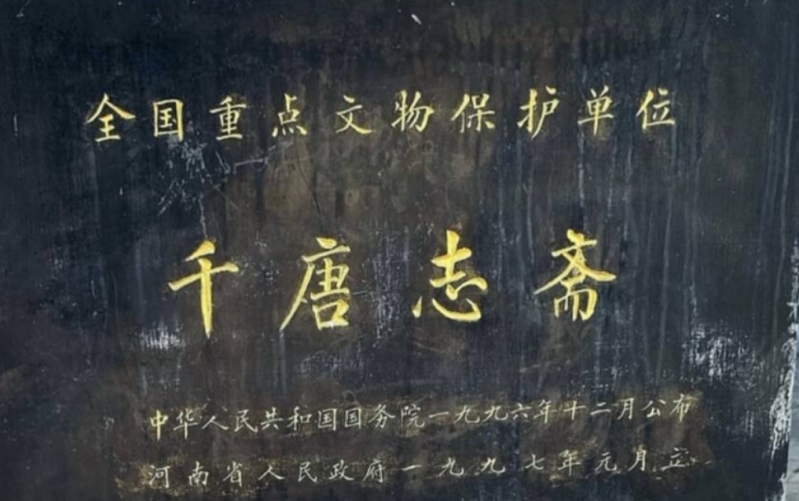 全国重点文物保护单位
千唐志斋
中华人民共和国国务院一九九六年十二月公布
河南省人民政府一九九七年元月立